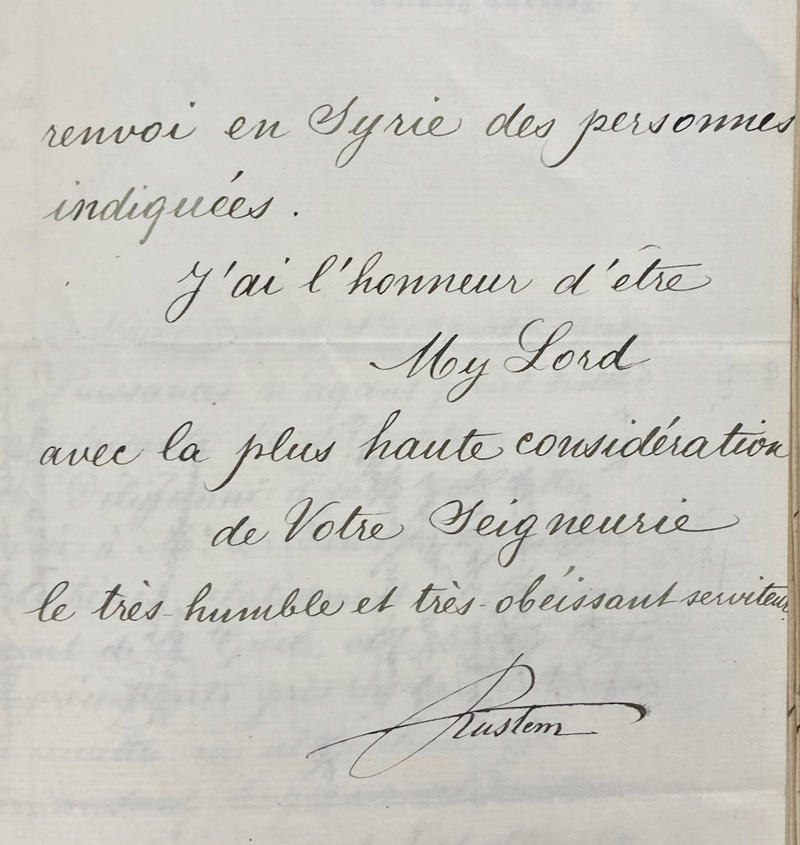 renvoi en Syrie des personnes
indiquées.
J'ai l'honneur d'être
My Lord
avec la plus haute considération
de Votre Seigneurie
le très-humble et très-obéissant serviteur.
Rustem